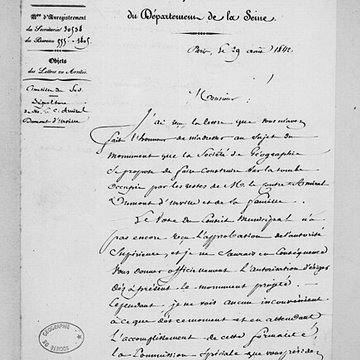 du Département de la Seine.
Nos d'Enregistrement
du Secrétariat 30538
du Bureau 555-1805
Objets
des Lettres ou Arrêtés
Cimetière du Sud
Sépulture
de Mr. le C. Amiral
Dumont d'Urville
Paris, le 29 août 1842.
Monsieur,
J'ai reçu la lettre que vous m'avez
fait l'honneur de m'adresser au sujet du
monument que la Société de Géographie
se propose de faire construire sur la tombe
occupée par les restes de Mr. le Contre-Amiral
Dumont d'Urville et de sa famille.
Le Vote du Conseil Municipal n'a
pas encore reçu l'approbation de l'autorité
Supérieure, et je ne saurais en conséquence
vous donner officiellement l'autorisation d'ériger
dès à présent le monument projeté.
Cependant je ne vois aucun inconvénient
à ce que dès ce moment et en attendant
l'accomplissement de cette formalité
la Commission spéciale que vous présidez